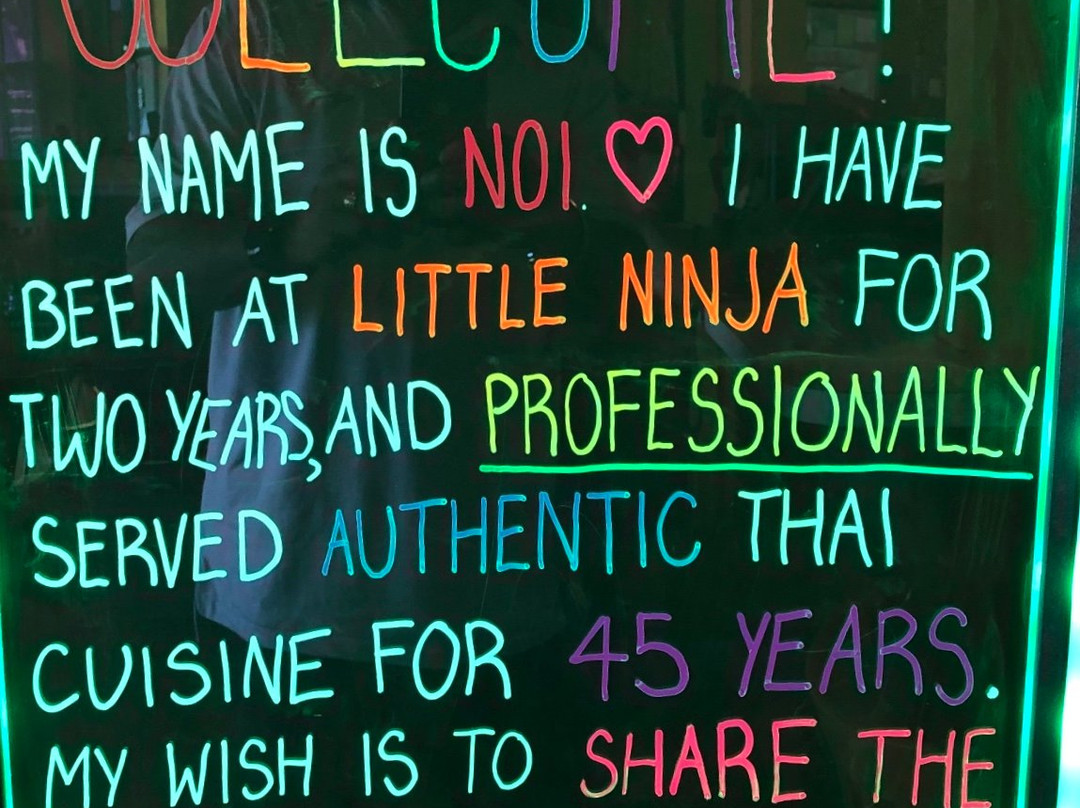 WELCOME!
MY NAME IS NOI. ♡ I HAVE
BEEN AT LITTLE NINJA FOR
TWO YEARS, AND PROFESSIONALLY
SERVED AUTHENTIC THAI
CUISINE FOR 45 YEARS.
MY WISH IS TO SHARE THE